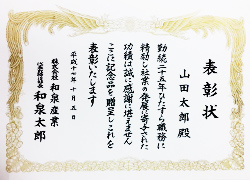 表彰状
山田太郎殿
勤続二十五年ひたすら職務に
精励し社業の発展に寄与された
功績は誠に感謝に堪えません
ここに記念品を贈呈しこれを
表彰いたします
平成十七年十月五日
株式会社和泉産業
代表取締役和泉太郎